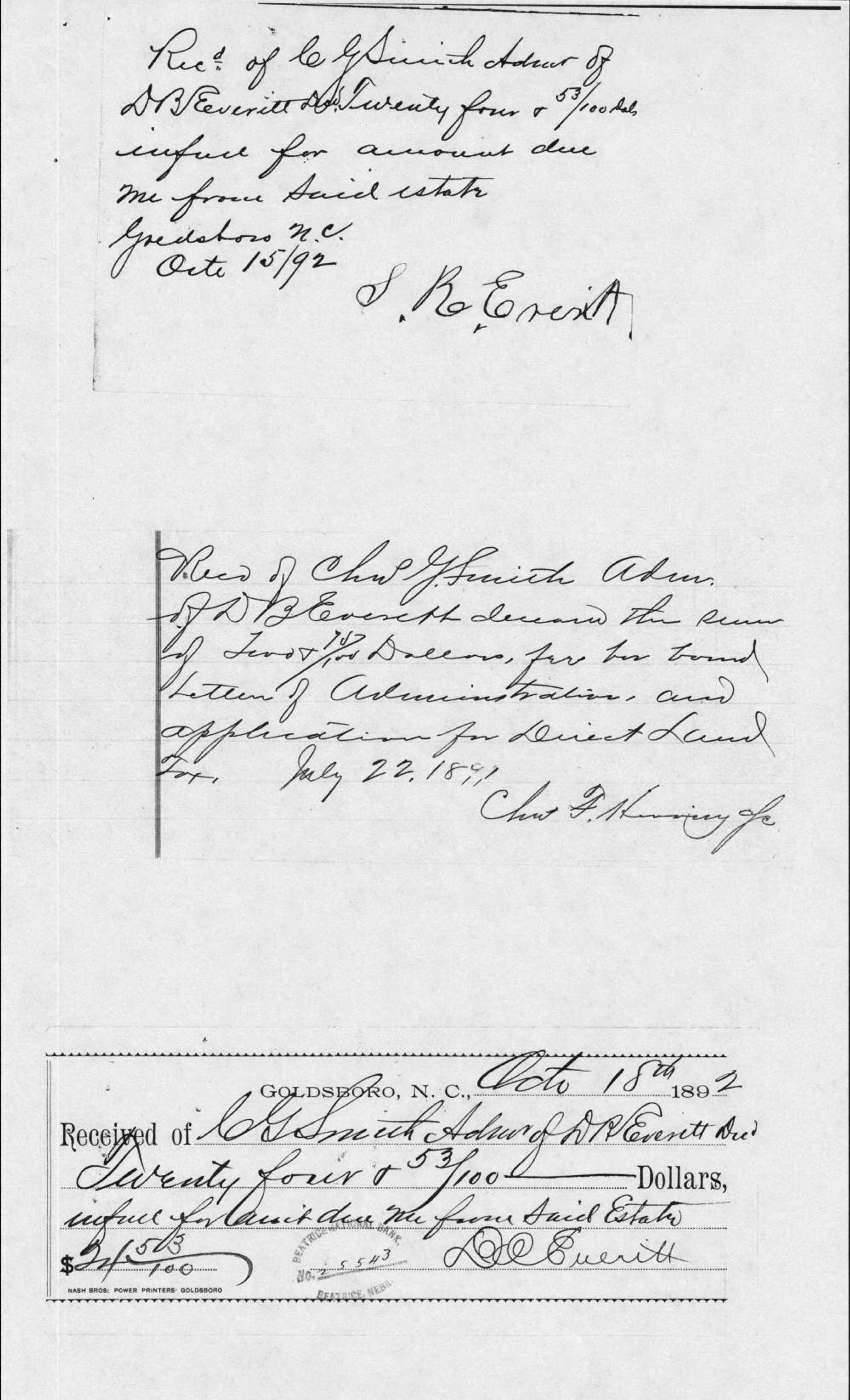 Recd. of C G Smith Admr of
D B Everitt Decd. Twenty four & 53/100 Dols
in full for amount due
me from said estate
Goldsboro N.C.
Octo 15/92
S. R. Everitt.
Recd of Chas G. Smith Adm.
of D B Everett deceased the sum
of Two & /100 Dollars, for bond
Letters of Administration, and
application for Direct Land
Tax. July 22. 1891
Chas F. Herring Jr
GOLDSBORO, N. C., Octo 18th 1892
Received of C G Smith Admr of D B Everitt Decd
Twenty four & 53/100 Dollars,
in full for amt due me from said Estate
$24 53/100
D C Everitt
BEATRICE NATIONAL BANK.
No. 25543
BEATRICE, NEBR.
NASH BROS: POWER PRINTERS· GOLDSBORO